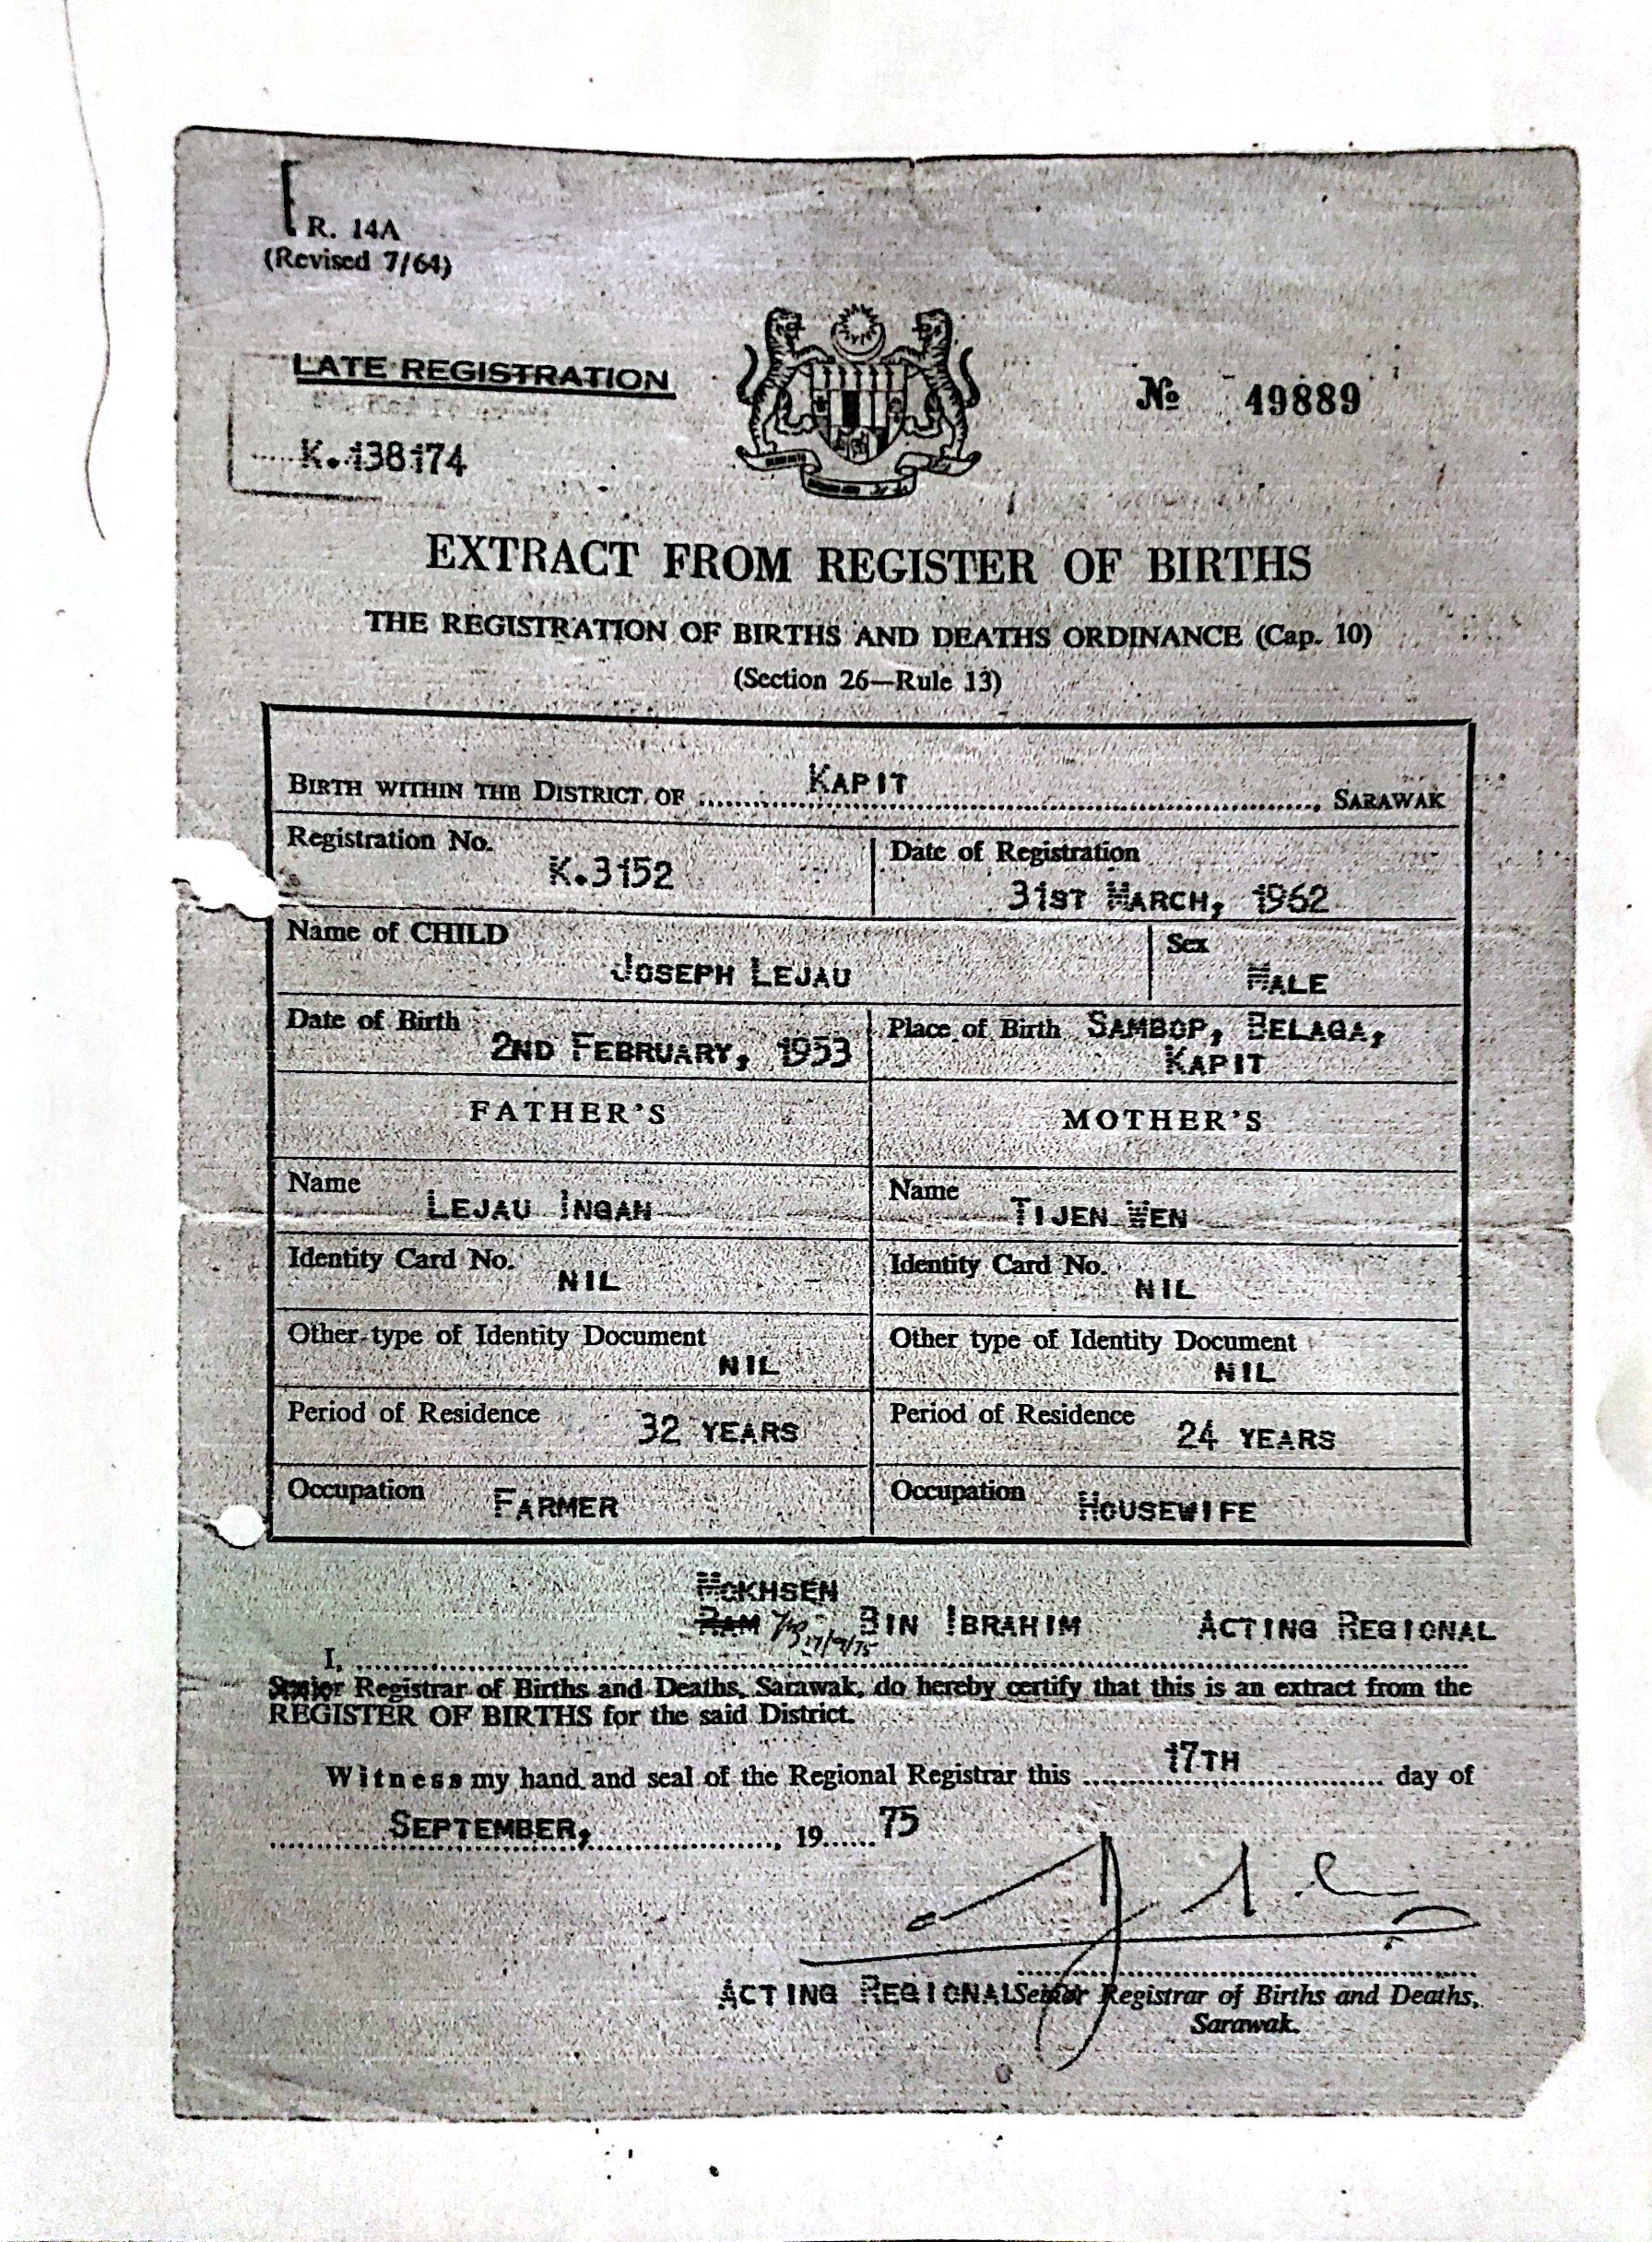 R. 14A
(Revised 7/64)
LATE REGISTRATION
K. 138174
No 49889
EXTRACT FROM REGISTER OF BIRTHS
THE REGISTRATION OF BIRTHS AND DEATHS ORDINANCE (Cap. 10)
(Section 26—Rule 13)
BIRTH WITHIN THE DISTRICT OF KAPIT, SARAWAK
Registration No. K.3152
Date of Registration 31ST MARCH, 1962
Name of CHILD JOSEPH LEJAU
Sex MALE
Date of Birth 2ND FEBRUARY, 1953
Place of Birth SAMBOP, BELAGA,
KAPIT
FATHER'S
MOTHER'S
Name LEJAU INGAN
Name TIJEN WEN
Identity Card No. NIL
Identity Card No. NIL
Other type of Identity Document NIL
Other type of Identity Document NIL
Period of Residence 32 YEARS
Period of Residence 24 YEARS
Occupation FARMER
Occupation HOUSEWIFE
MOKHSEN
RAM 17/9/75 BIN IBRAHIM ACTING REGIONAL
I,
Senior Registrar of Births and Deaths, Sarawak, do hereby certify that this is an extract from the
REGISTER OF BIRTHS for the said District.
Witness my hand and seal of the Regional Registrar this 17TH day of
SEPTEMBER, 19 75
ACTING REGIONAL Senior Registrar of Births and Deaths,
Sarawak.